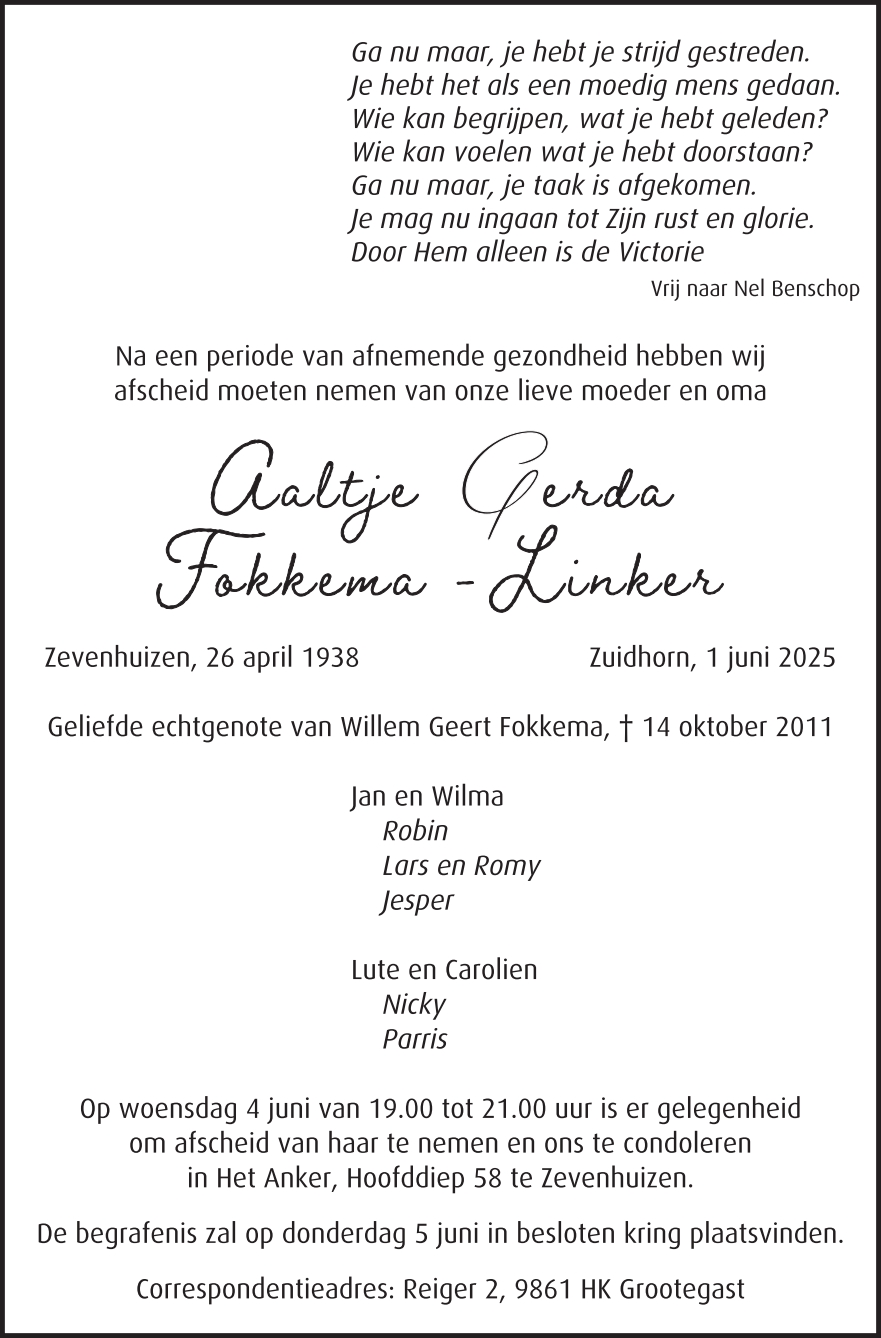 Ga nu maar, je hebt je strijd gestreden.
Je hebt het als een moedig mens gedaan.
Wie kan begrijpen, wat je hebt geleden?
Wie kan voelen wat je hebt doorstaan?
Ga nu maar, je taak is afgekomen.
Je mag nu ingaan tot Zijn rust en glorie.
Door Hem alleen is de Victorie
Vrij naar Nel Benschop
Na een periode van afnemende gezondheid hebben wij
afscheid moeten nemen van onze lieve moeder en oma
Aaltje Gerda
Fokkema - Linker
Zevenhuizen, 26 april 1938 Zuidhorn, 1 juni 2025
Geliefde echtgenote van Willem Geert Fokkema, † 14 oktober 2011
Jan en Wilma
Robin
Lars en Romy
Jesper
Lute en Carolien
Nicky
Parris
Op woensdag 4 juni van 19.00 tot 21.00 uur is er gelegenheid
om afscheid van haar te nemen en ons te condoleren
in Het Anker, Hoofddiep 58 te Zevenhuizen.
De begrafenis zal op donderdag 5 juni in besloten kring plaatsvinden.
Correspondentieadres: Reiger 2, 9861 HK Grootegast